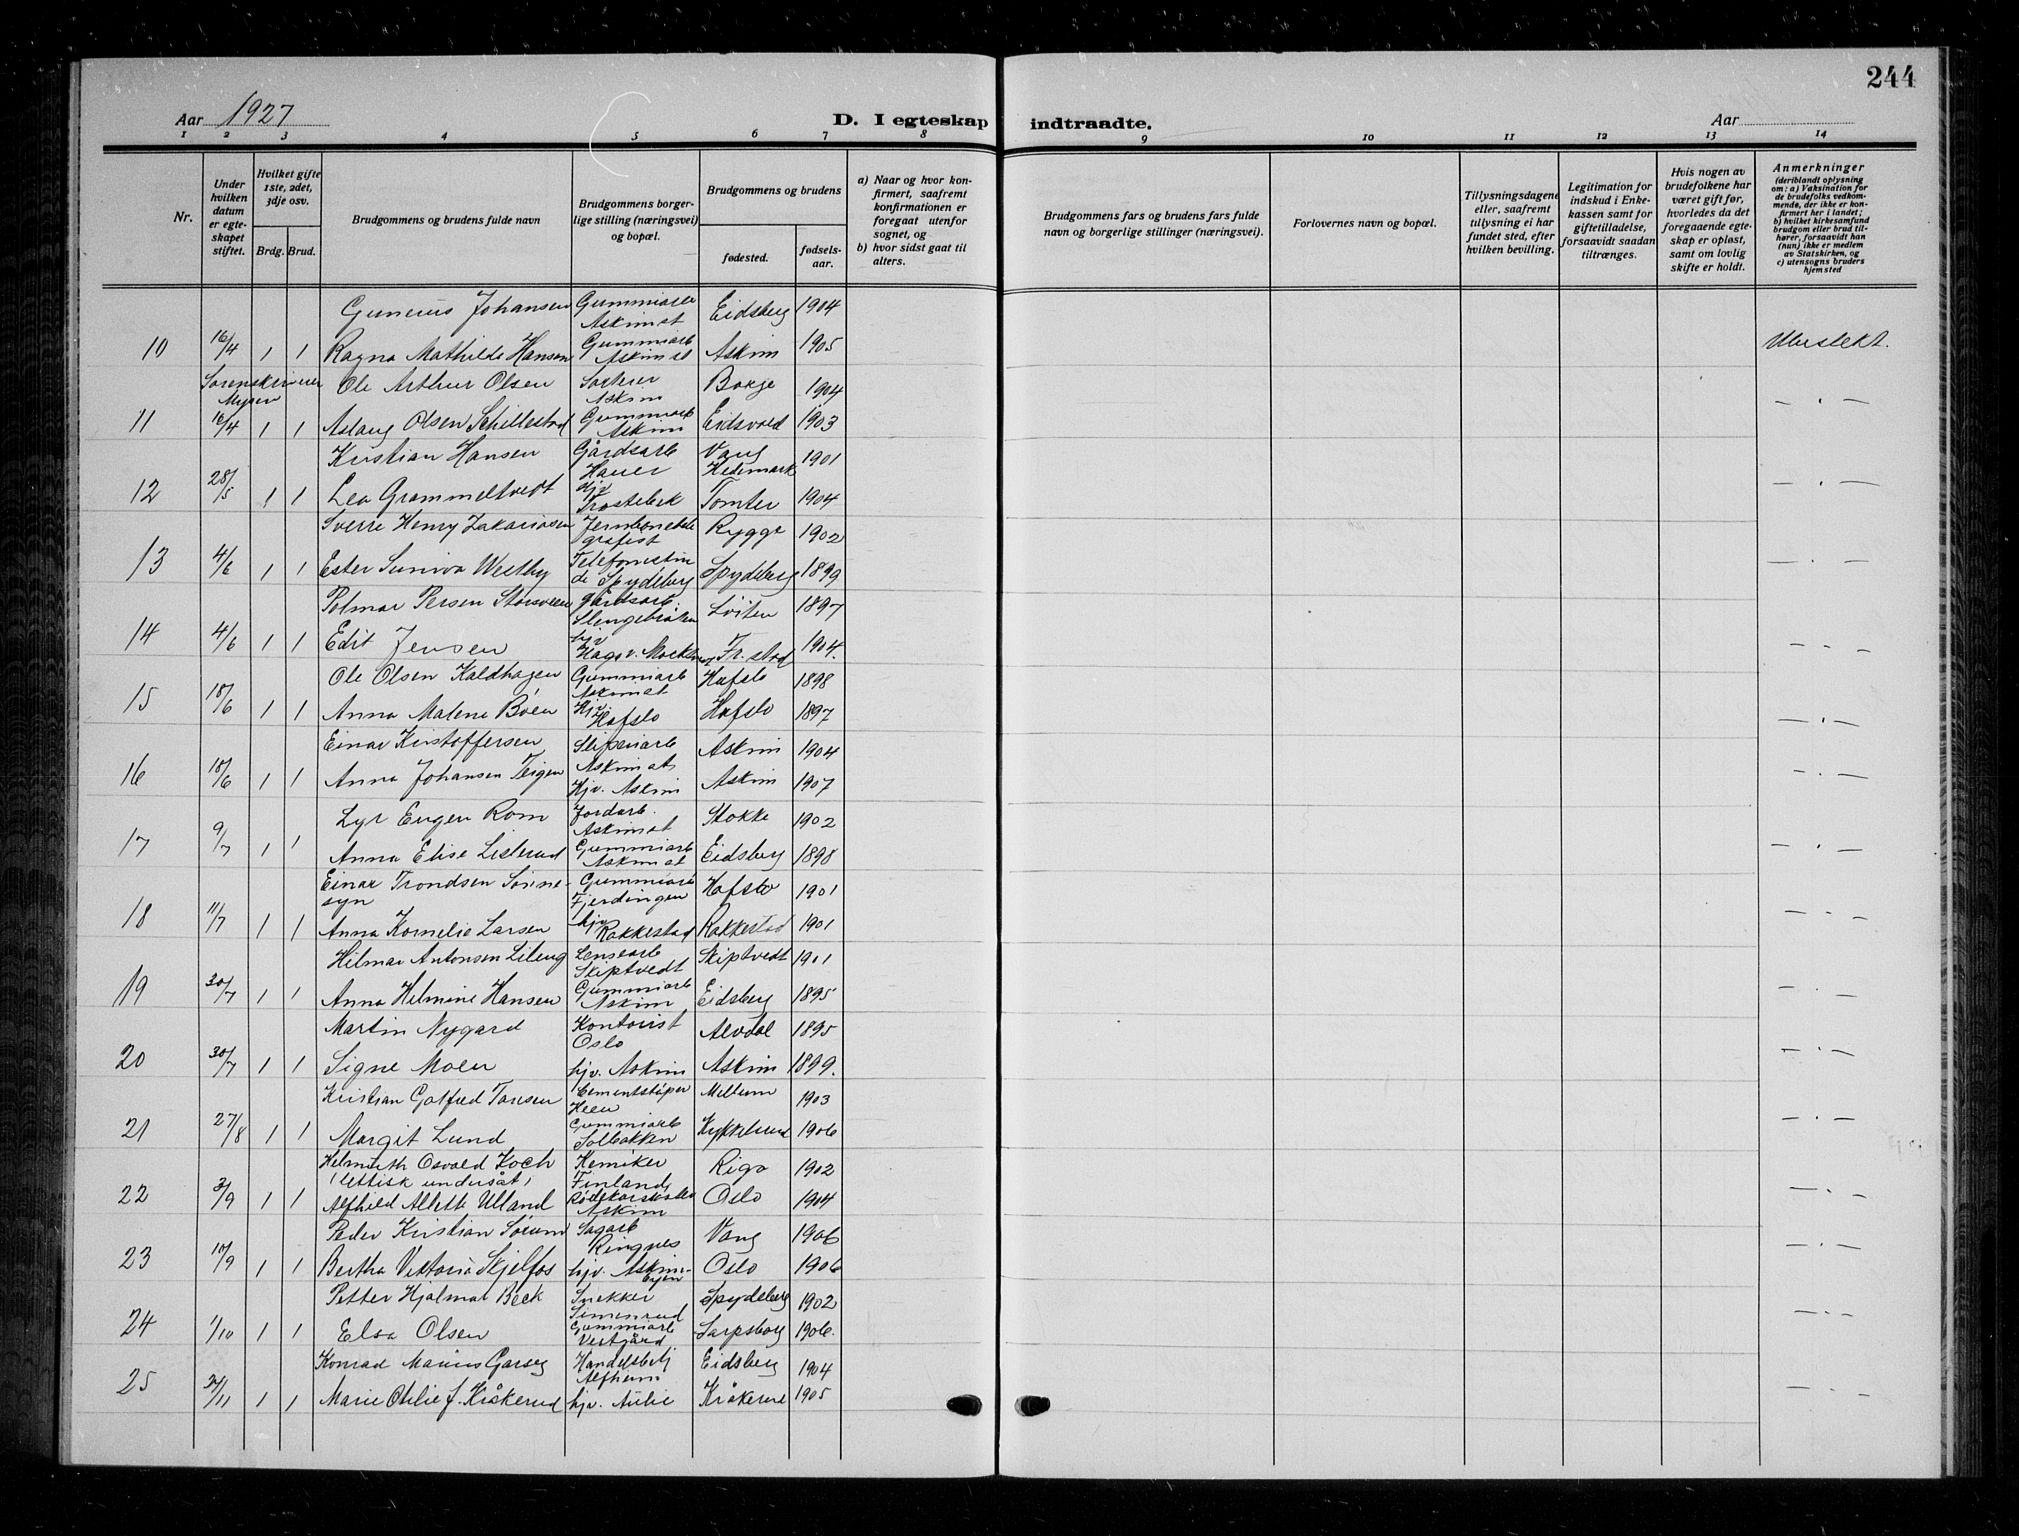 244
Aar 1927
D. I egteskap indtraadte.
Aar
1 2 3 4 5 6 7 8 9 10 11 12 13 14
Nr.
Under hvilken datum er egteskapet stiftet.
Hvilket gifte 1ste, 2det, 3dje osv.
Brdg. Brud.
Brudgommens og brudens fulde navn
Brudgommens borgerlige stilling (næringsvei) og bopæl.
Brudgommens og brudens
fødested.
fødselsaar.
a) Naar og hvor konfirmert, saafremt konfirmationen er foregaat utenfor sognet, og
b) hvor sidst gaat til alters.
Brudgommens fars og brudens fars fulde navn og borgerlige stillinger (næringsvei).
Forlovernes navn og bopæl.
Tillysningsdagene eller, saafremt tillysning ei har fundet sted, efter hvilken bevilling.
Legitimation for indskud i Enkekassen samt for giftetilladelse, forsaavidt saadan tiltrænges.
Hvis nogen av brudefolkene har været gift før, hvorledes da det foregaaende egteskap er opløst, samt om lovlig skifte er holdt.
Anmerkninger
(deriblandt oplysning om: a) Vaksination for de brudefolks vedkommende, der ikke er konfirmert her i landet; b) hvilket kirkesamfund brudgom eller brud tilhører, forsaavidt han (hun) ikke er medlem av Statskirken, og c) utensogns bruders hjemsted
Gunerius Johansen Gummiarb Askim st Eidsberg 1904
10 16/4 1 1 Ragna Mathilde Hansen Gummiarb Askim st Askim 1905
Sorenskriver Mysen Ole Arthur Olsen Askim Borge 1904 — " —
11 16/4 1 1 Aslaug Olsen Gummiarb Askim Eidsvold 1903
Kristian Hansen Gårdsarb Vang Hedemark 1901
12 28/5 1 1 Lea Grammeltvedt hjv Trøstebek Tomter 1904 — " —
Sverre Henry Zakariasen Jernbanetelegrafist Rygge 1902
13 4/6 1 1 Ester Suniva Westby Telefonistinde Spydeberg Spydeberg 1899 — " —
Polmar Persen Storsveen Gårdsarb. Slengebråten Løiten 1897
14 4/6 1 1 Edit Jensen hjv Fr.stad 1904. — " —
Ole Olsen Kaldhagen Gummiarb Askim st Hafslo 1898
15 18/6 1 1 Anna Malena Bøen Hjv. Hafslo Hafslo 1897 — " —
Einar Kristoffersen Sliperiarb Askim st. Askim 1904
16 18/6 1 1 Anna Johansen Teigen Hjv. Askim Askim 1907 — " —
Lyr Eugen Rom Jordarb. Askim st Stokke 1902
17 9/7 1 1 Anna Elise Listerud Gummiarb Askim st Eidsberg 1898 — " —
Einar Trondsen Sønnesyn Gummiarb Fjerdingen Hafslo 1901
18 11/7 1 1 Anna Kornelie Larsen hjv Rakkestad Rakkestad 1901 — " —
Hilmar Antonsen Lileng Lensearb Skiptvedt Skiptvedt 1901
19 30/7 1 1 Anna Helmine Hansen Gummiarb Askim Eidsberg 1895 — " —
Martin Nygard Kontorist Oslo Alvdal 1895
20 30/7 1 1 Signe Moen hjv. Askim Askim 1899. — " —
Kristian Gotfred Tansen Cementstøper Heen Mellum 1903
21 27/8 1 1 Margit Lund Gummiarb Solbakken Kykkelsrud 1906 — " —
Helmuth Osvald Koch (lettisk undersåt) Kemiker Finland Riga 1902
22 3/9 1 1 Alfhild Allette Ulland Askim Oslo 1904 — " —
Peder Kristian Sørum Sagarb Ringnes Vang 1906
23 10/9 1 1 Bertha Viktoria Skjelfos hjv. Askimbyen Oslo 1906 — " —
Petter Hjalmar Beck Snekker Simenrud Spydeberg 1902
24 1/10 1 1 Elsa Olsen Gummiarb Vestgård Sarpsborg 1906. — " —
Konrad Marius Garseg Handelsbetj Alfheim Eidsberg 1904
25 24/11 1 1 Marie Otilie J. Kråkerud hjv. Aulie Kråkerud 1905 — " —